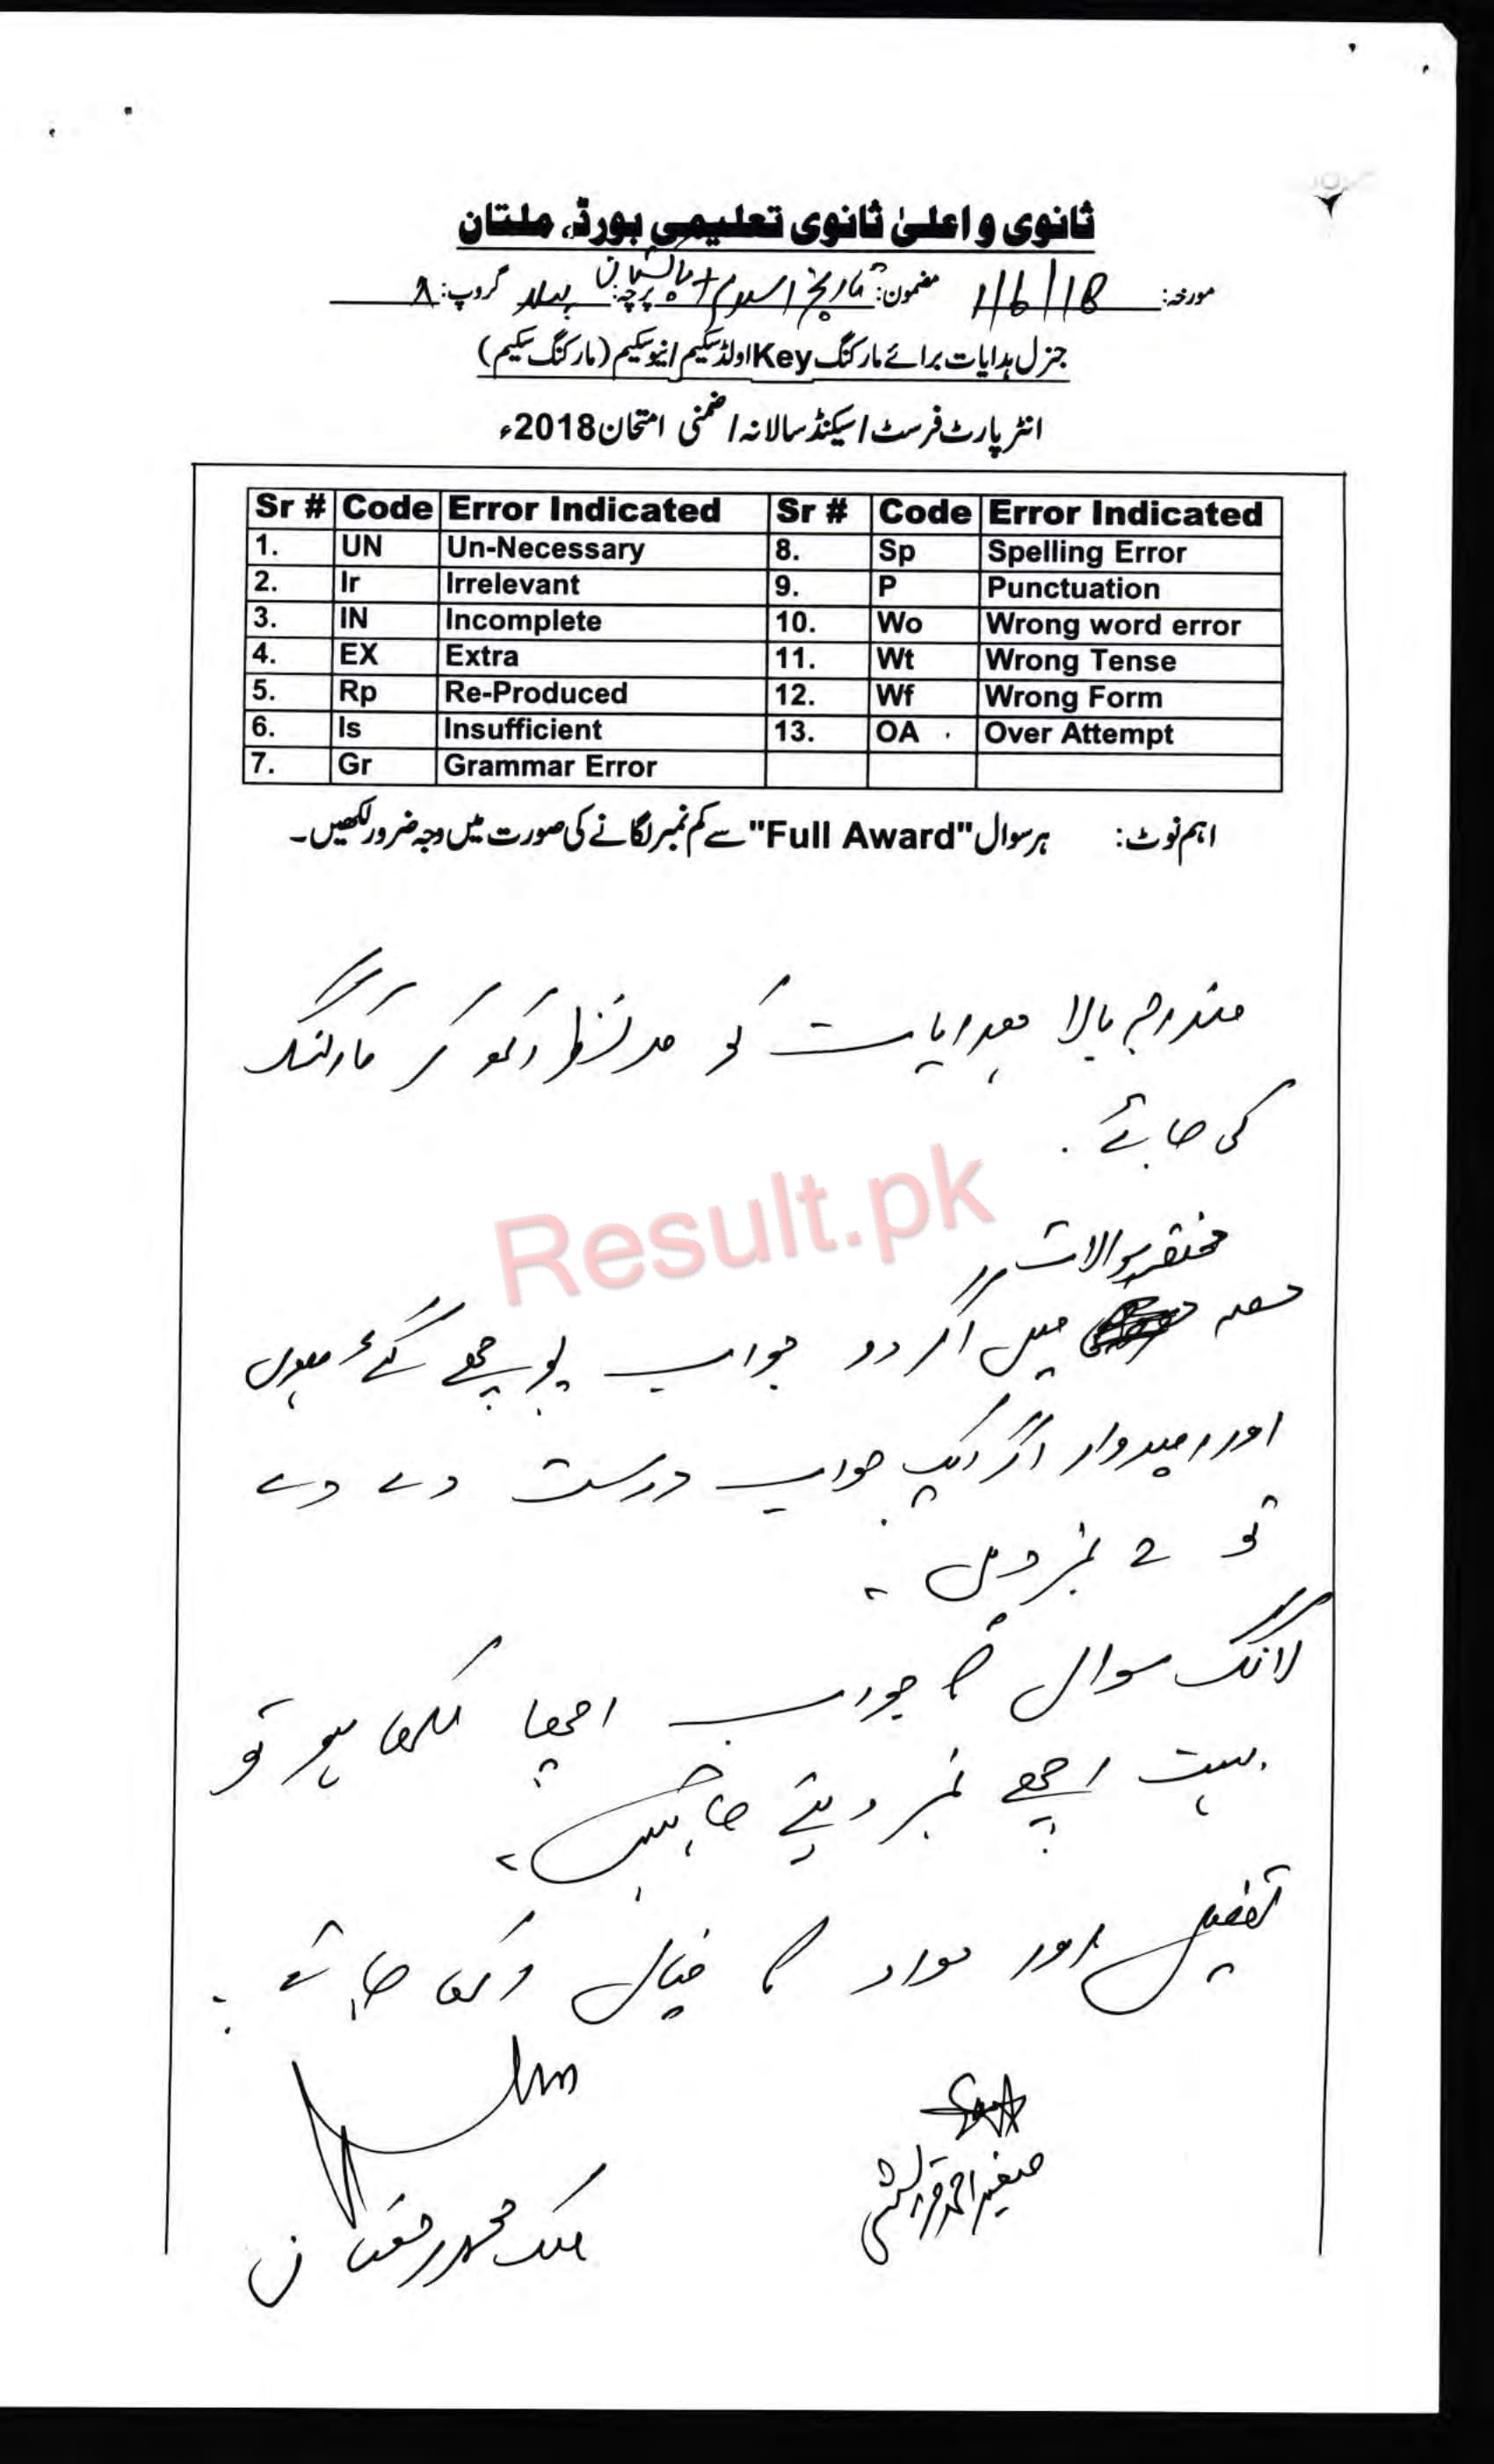 ثانوی و اعلیٰ ثانوی تعلیمی بورڈ، ملتان
مورخہ: 1/6/18 مضمون: تاریخ اسلام + پاکستان پرچہ: پہلا گروپ:
جنرل ہدایات برائے مارکنگ Key اولڈ سکیم/نیو سکیم (مارکنگ سکیم)
انٹر پارٹ فرسٹ/سیکنڈ سالانہ/ضمنی امتحان 2018ء
Sr # Code Error Indicated Sr # Code Error Indicated
1. UN Un-Necessary 8. Sp Spelling Error
2. Ir Irrelevant 9. P Punctuation
3. IN Incomplete 10. Wo Wrong word error
4. EX Extra 11. Wt Wrong Tense
5. Rp Re-Produced 12. Wf Wrong Form
6. Is Insufficient 13. OA Over Attempt
7. Gr Grammar Error
اہم نوٹ: ہر سوال "Full Award" سے کم نمبر لگانے کی صورت میں وجہ ضرور لکھیں۔
مندرجہ بالا ہدایات کو مدنظر رکھ کر مارکنگ
کی جائے۔
Result.pk
مختصر سوالات
حصہ میں اگر دو جواب پوچھے گئے ہوں
اور امیدوار اگر ایک جواب درست دے دے
تو 2 نمبر دیں۔
لانگ سوال کا جواب اچھا لکھا ہو تو
بہت اچھے نمبر دیئے جائیں۔
تفصیل اور مواد کا خیال رکھا جائے۔
صغیر احمد قریشی
ملک محمد رمضان